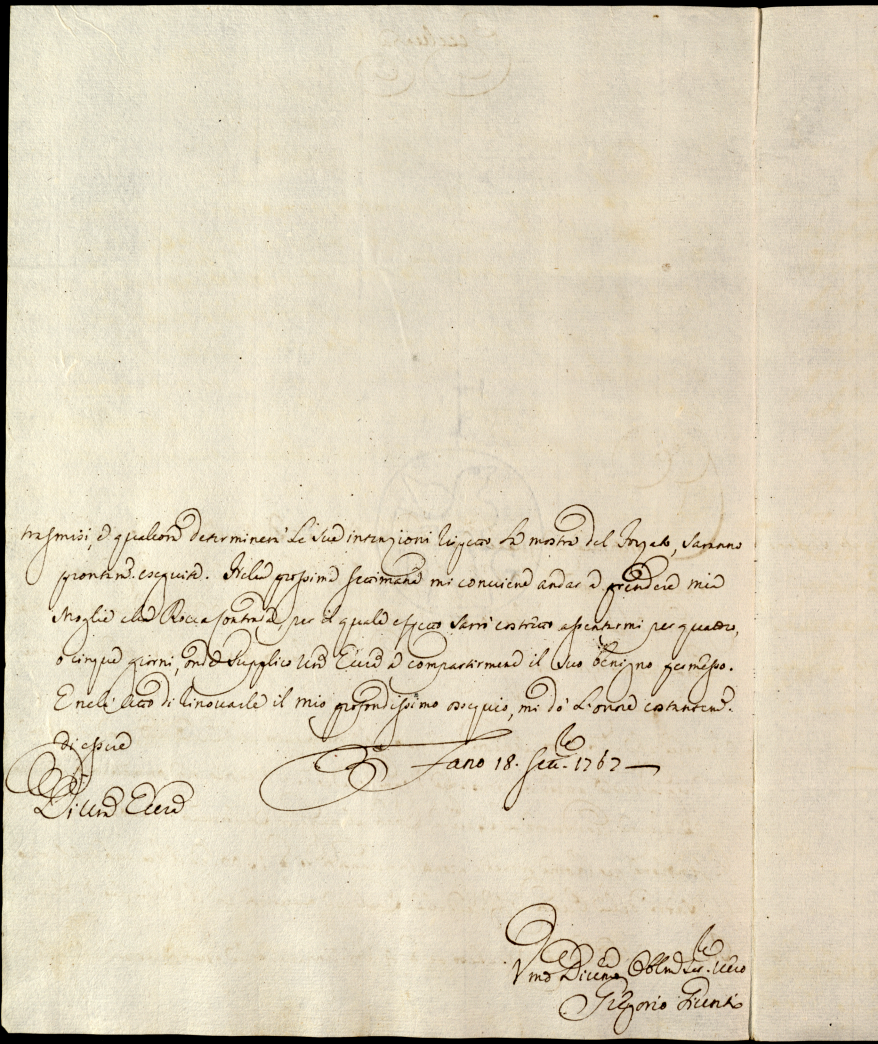 trasmisi, e qualora determinerà le sue intenzioni rispetto la mostra del , saranno
prontam.e eseguite. Nella prossima settimana mi conviene andar a prendere mia
Moglie alla Roccacontrada, per il quale effetto sarò costretto assentarmi per quattro,
o cinque giorni, onde supplico Vrā Eccza a compartirmene il suo benigno permesso.
E nell'atto di rinovarle il mio profondissimo ossequio, mi dò l'onore costantem.e
di essere
Fano 18. Sett.bre 1767
Di Vrā Eccza
Vmo Obblmo Ser.re vero
Gregorio